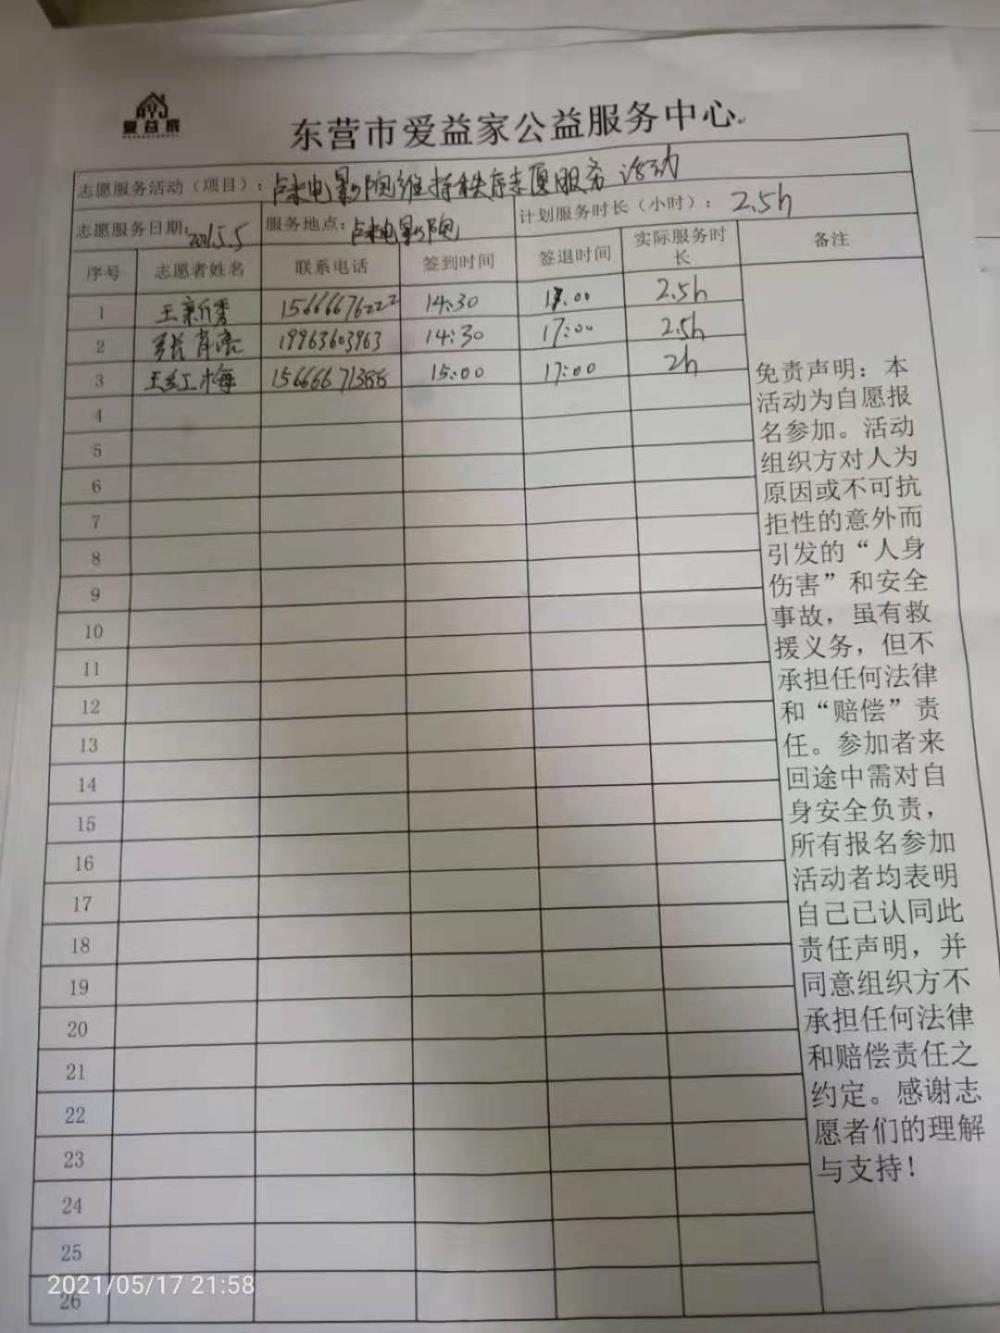 AYJ
爱益家
东营市爱益家公益服务中心
志愿服务活动（项目）：卢米电影院维持秩序志愿服务 活动
志愿服务日期： 服务地点：卢米电影院 计划服务时长（小时）：2.5h
序号 志愿者姓名 联系电话 签到时间 签退时间 实际服务时长 备注
1 王新秀 15666676222 14:30 17:00 2.5h
2 张肖亮 19963603963 14:30 17:00 2.5h
3 王红梅 15666671388 15:00 17:00 2h
4
5
6
7
8
9
10
11
12
13
14
15
16
17
18
19
20
21
22
23
24
25
26
免责声明：本
活动为自愿报
名参加。活动
组织方对人为
原因或不可抗
拒性的意外而
引发的“人身
伤害”和安全
事故，虽有救
援义务，但不
承担任何法律
和“赔偿”责
任。参加者来
回途中需对自
身安全负责，
所有报名参加
活动者均表明
自己已认同此
责任声明，并
同意组织方不
承担任何法律
和赔偿责任之
约定。感谢志
愿者们的理解
与支持！
2021/05/17 21:58